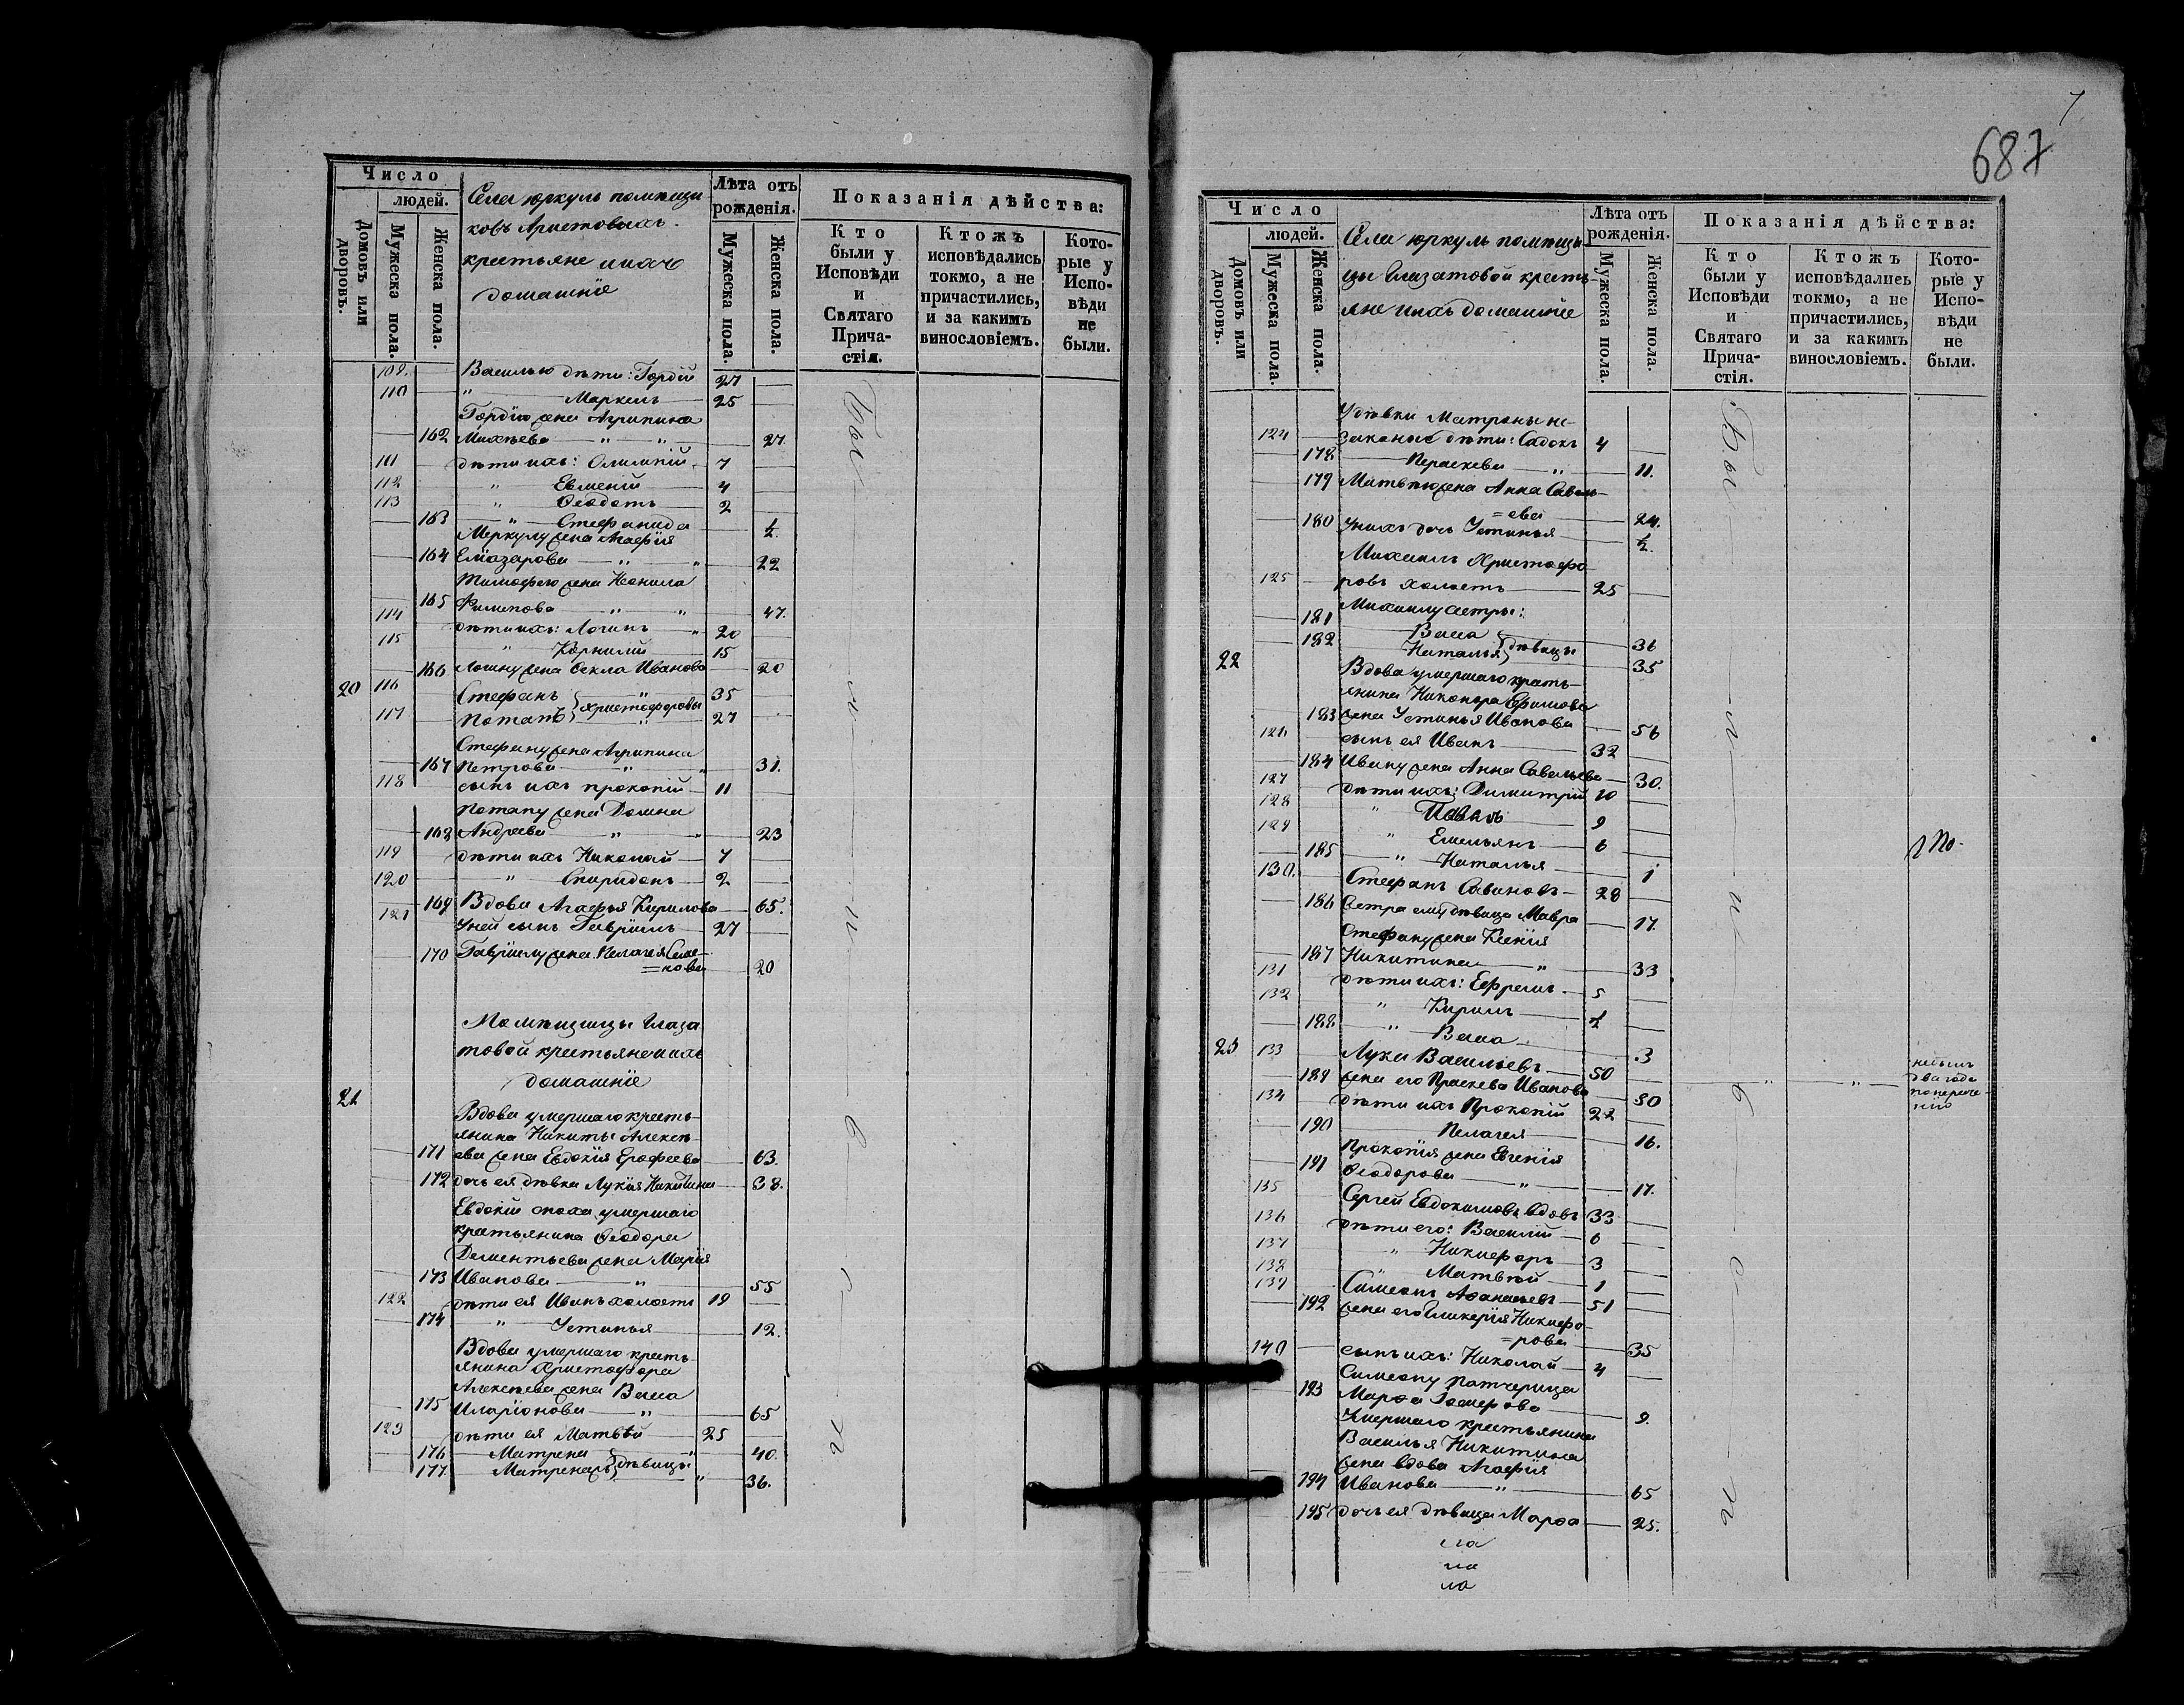 Число
людей.
Домовъ или дворовъ.
Мужеска пола.
Женска пола.
Села юркуль помѣщи
ковъ Аристовыхъ.
крестьяне и ихъ
домашніе
Лѣта отъ
рожденія.
Мужеска пола.
Женска пола.
Показанія дѣйства:
Кто
были у
Исповѣди
и
Святаго
Прича-
стія.
Ктожъ
исповѣдались
токмо, а не
причастились,
и за какимъ
винословіемъ.
Кото-
рые у
Испо-
вѣди
не
были.
109. Василью дѣти: Гордій 27
110 " Маркелъ 25
Гордію жена Агрипина
162 Михѣева " " 27.
111 дѣти ихъ: Олимпій 7
112 " Евменій 4
113 " Ѳеодотъ 2
163 " Стефанида ½.
Меркулу жена Агафія
164 Елиазарова " " 22
Тимофею жена Неонила
165 Филипова " " 47.
114 дѣти ихъ: Логинъ " 20
115 " Корнилій 15
166 Логину жена Ѳекла Иванова 20
20 116 Стефанъ } Христофоровы " 35
117 Потапъ } " 27
Стефану жена Агрипина
167 Петрова " " 31.
118 сынъ ихъ прокопій 11
Потапу жена Домна
168 Андреева " " 23
119 дѣти ихъ Николай 7
120 " Спиридонъ 2
169 Вдова Агафья Кирилова 65.
121 У ней сынъ Гаврiилъ 27
170 Гаврiилу жена Пелагея Семе-
=нова 20
Помѣщицы Глаза
товой крестьяне и ихъ
домашніе
21
Вдова умершаго кресть-
янина Никиты Алексѣ-
171 ева жена Евдокія Ерофеева 63.
172 дочь ея дѣвка Лукія Никитина 38.
Евдокіи сноха умершаго
крестьянина Ѳеодора
Дементьева жена Марія
173 Иванова " 55
122 дѣти ея Иванъ холостъ 19
174 " Устинья 12.
Вдова умершаго кресть-
янина Христофора
Алексѣева жена Васса
175 Иларіонова " 65
123 дѣти ея Матвѣй 25
176 Матрена } дѣвицы " 40.
177. Матрена } " 36.
687
Число
людей.
Домовъ или дворовъ.
Мужеска пола.
Женска пола.
Села юркуль помѣщи
цы Глазатовой кресть-
яне и ихъ домашніе
Лѣта отъ
рожденія.
Мужеска пола.
Женска пола.
Показанія дѣйства:
Кто
были у
Исповѣди
и
Святаго
Прича-
стія.
Ктожъ
исповѣдались
токмо, а не
причастились,
и за какимъ
винословіемъ.
Кото-
рые у
Испо-
вѣди
не
были.
У дѣвки Матроны не-
124 законые дѣти: Садокъ 4
178 Параскева " 11.
179 Матвѣю жена Анна Савель-
=ева 24.
180 У нихъ дочь Устинья ½.
Михаилъ Христофо
125 ровъ холостъ 25
Михаилу сестры:
181 Васса } дѣвицы 36
182 Наталья } 35
22 Вдова умершаго кресть-
янина Никонора Ефимова
183 жена Устинья Иванова 56
126 сынъ ея Иванъ 32
184 Ивану жена Анна Савельева 30.
127 дѣти ихъ: Димитрій 10
128 " Павелъ 9
129 " Емельянъ 6
185 " Наталья 1
130. Стефанъ Савиновъ 28
186 Сестра ему дѣвица Мавра 17.
Стефану жена Ксенія
187 Никитина " 33
131 дѣти ихъ: Ефремъ 5
132 " Кирилъ ½
188 " Васса 3
23 133 Лука Васильевъ 50
189 жена его Праскева Иванова 50
134 дѣти ихъ Прокопій 22
190 Пелагея 16.
Прокопія жена Евгенія
191 Ѳеодорова " 17.
135 Сергей Евдокимовъ вдовъ 33
136 дѣти его: Василій 6
137 " Никифоръ 3
138 Матвѣй 1
139 Симеонъ Афанасьевъ 51
192 жена его Гликерія Никифо-
=рова 35
140 сынъ ихъ: Николай 4
Симеону патчерица
193 Марѳа 9.
Умершаго крестьянина
Василья Никитина
жена вдова Агафія
194 Иванова " 65
195 дочь ея дѣвица Марѳа 25.